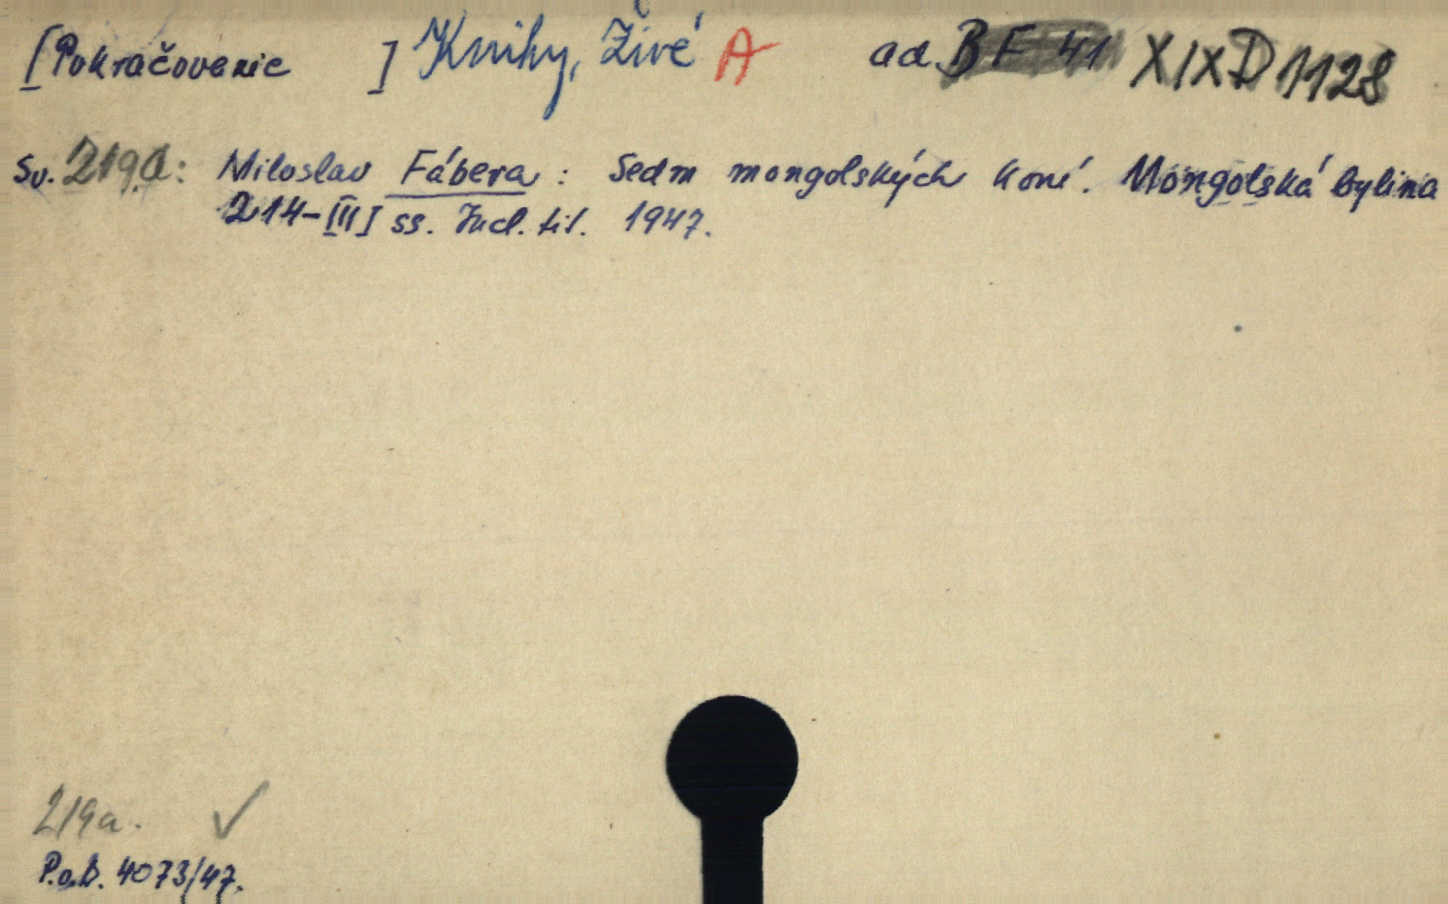 [Pokračovanie ] Knihy, Živé A ad. BF 41 XIX D 1128
Sv. 219a: Miloslav Fábera: Sedm mongolských koní. Mongolská bylina
214-[III] ss. Incl. tit. 1947.
219a. ✓
P.o.b. 4073/47.